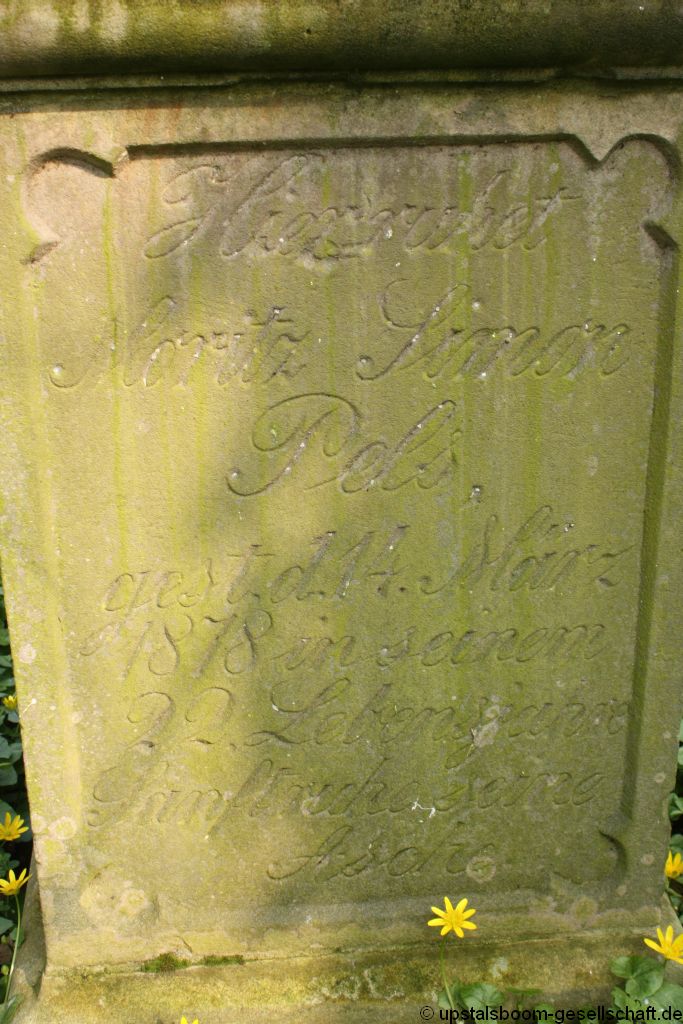 Hier ruhet
Moritz Simon
Pels,
gest. d. 14. März
1878 in seinem
22. Lebensjahre
Sanft ruhe seine
Asche
© upstalsboom-gesellschaft.de